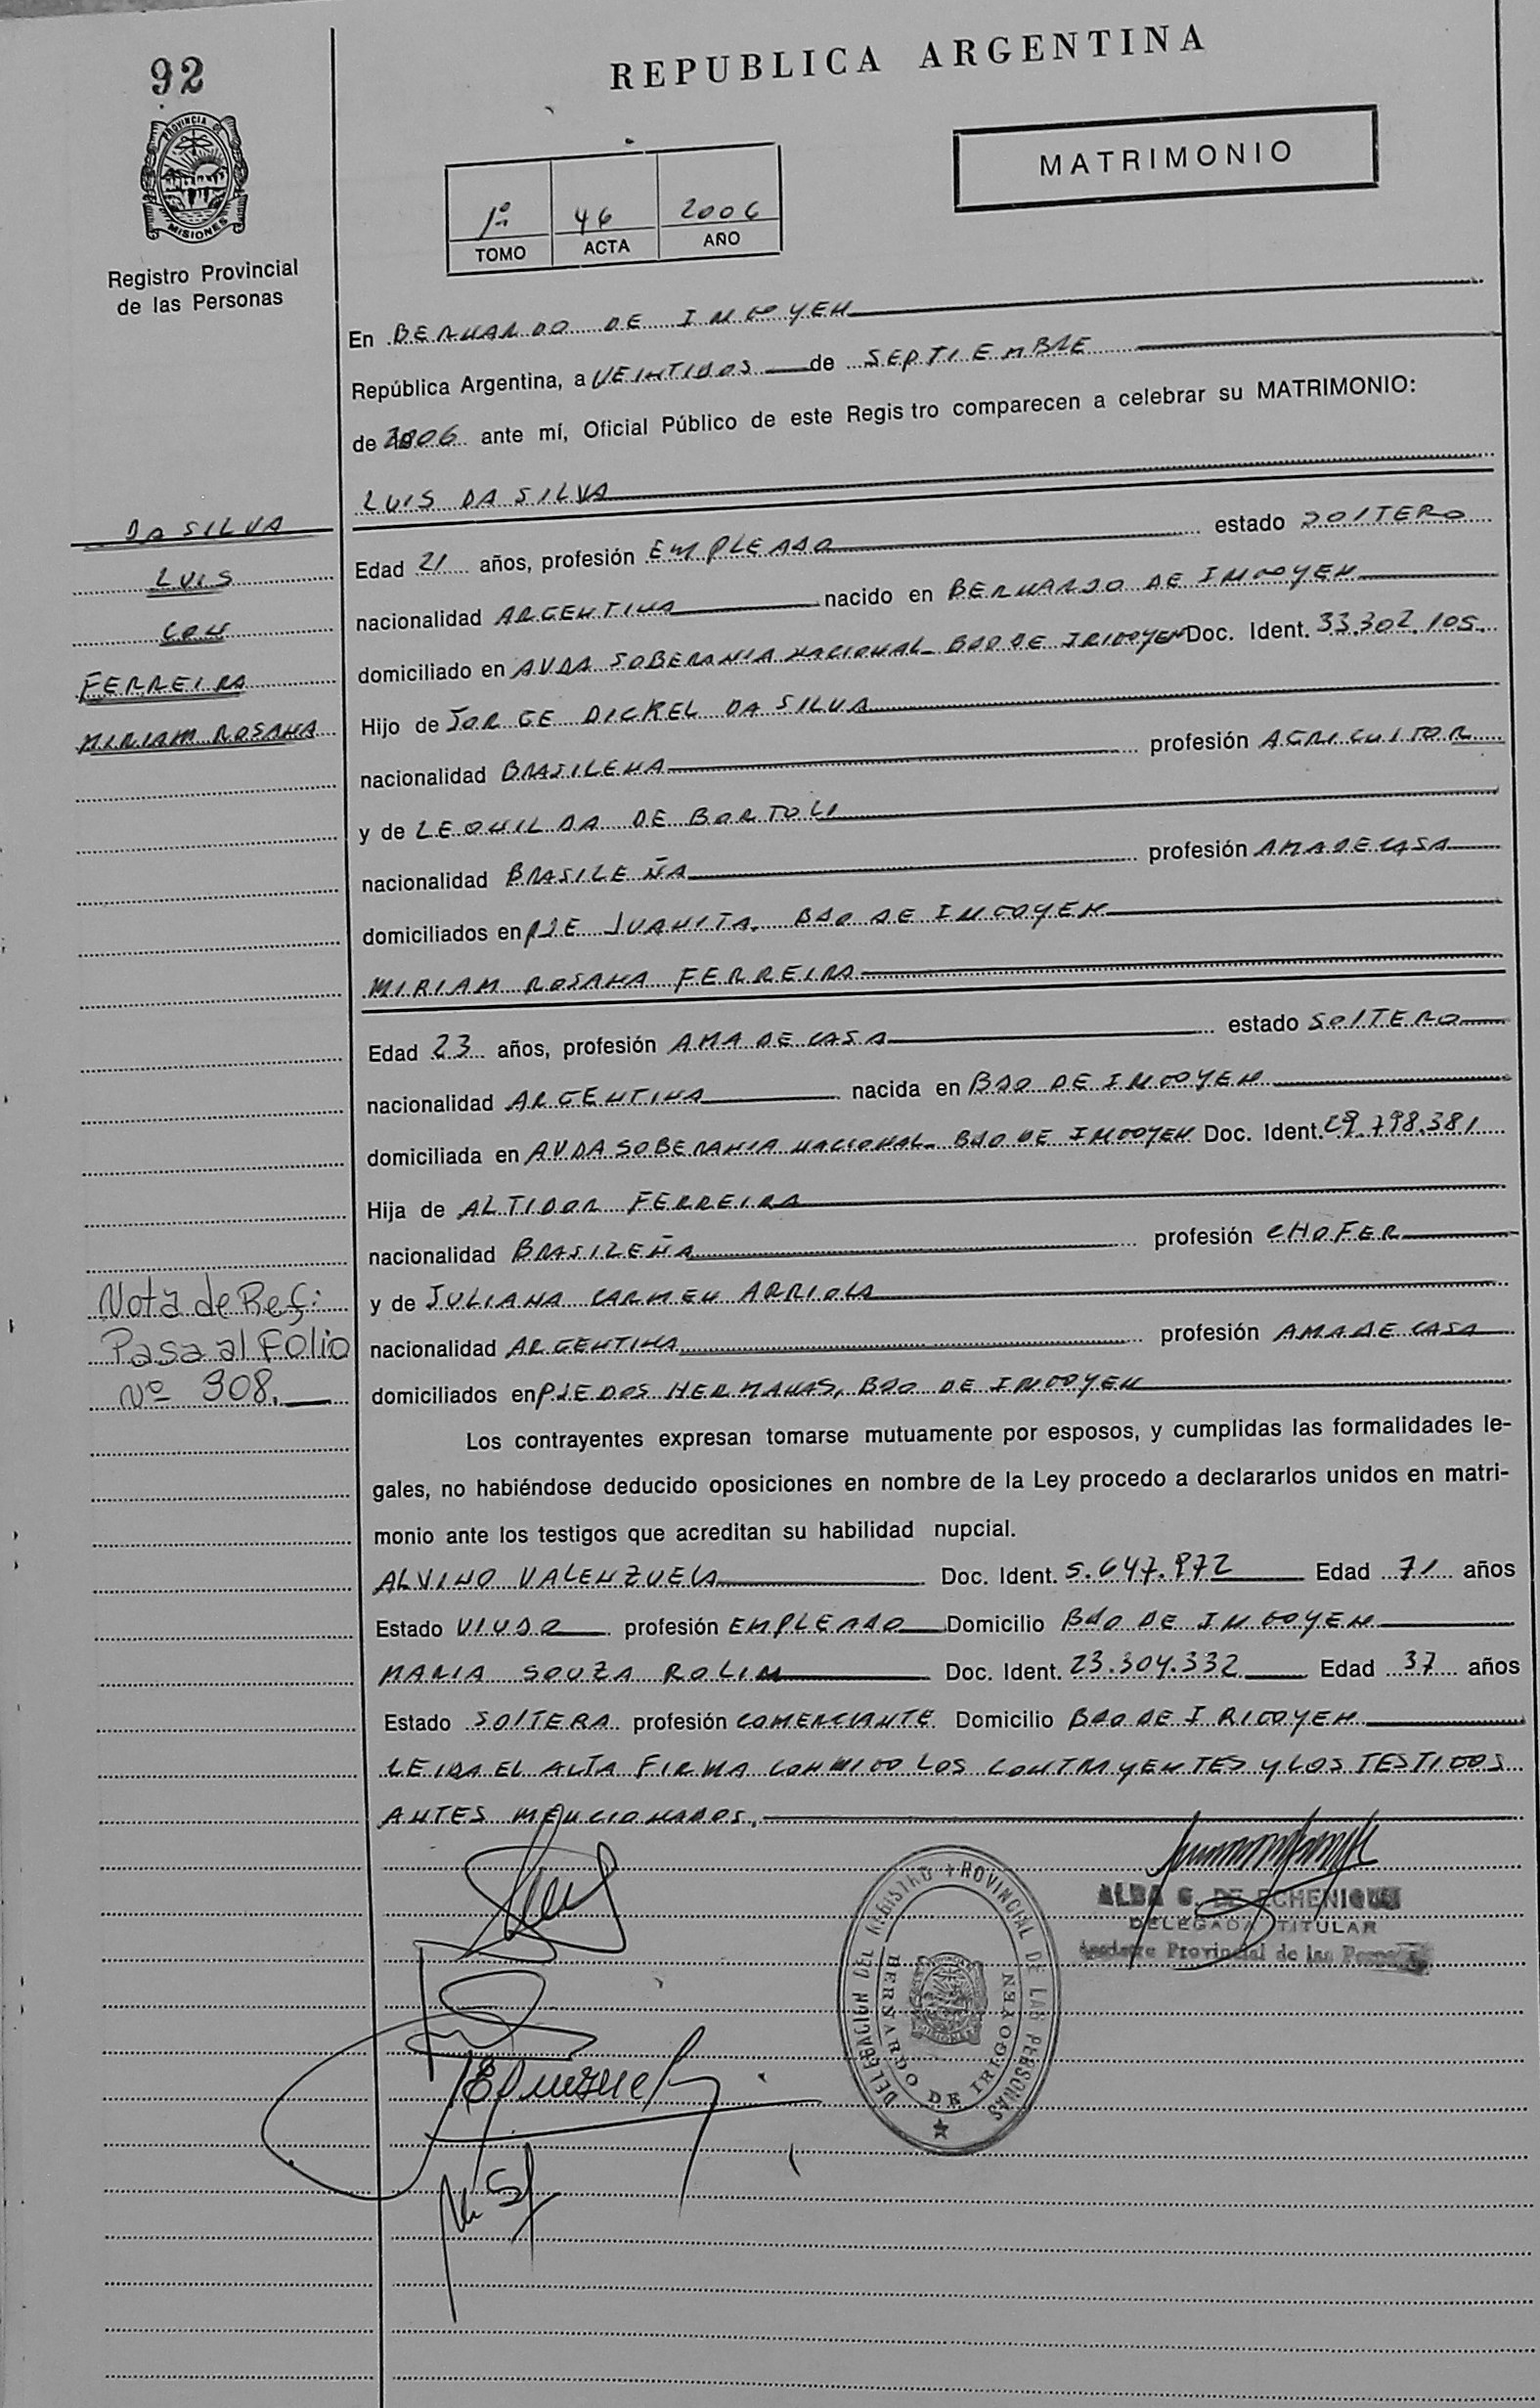 92
REPUBLICA ARGENTINA
PROVINCIA DE
MISIONES
Registro Provincial
de las Personas
MATRIMONIO
1º 46 2006
TOMO ACTA AÑO
En BERNARDO DE IRIGOYEN
República Argentina, a VEINTIDOS de SEPTIEMBRE
de 2006 ante mí, Oficial Público de este Regis tro comparecen a celebrar su MATRIMONIO:
LUIS DA SILVA
DA SILVA
LUIS
CON
FERREIRA
MIRIAM ROSANA
Edad 21 años, profesión EMPLEADO estado SOLTERO
nacionalidad ARGENTINA nacido en BERNARDO DE IRIGOYEN
domiciliado en AVDA SOBERANIA NACIONAL- BDO DE IRIGOYEN Doc. Ident. 33.302.105.
Hijo de JORGE DICKEL DA SILVA
nacionalidad BRASILEÑA profesión AGRICULTOR
y de LEONILDA DE BORTOLI
nacionalidad BRASILEÑA profesión AMA DE CASA
domiciliados en PJE JUANITA, BDO DE IRIGOYEN
MIRIAM ROSANA FERREIRA
Edad 23 años, profesión AMA DE CASA estado SOLTERO
nacionalidad ARGENTINA nacida en BDO DE IRIGOYEN
domiciliada en AVDA SOBERANIA NACIONAL- BDO DE IRIGOYEN Doc. Ident. 29.798.381
Hija de ALTIDOR FERREIRA
nacionalidad BRASILEÑA profesión CHOFER
y de JULIANA CARMEN ARRIOLA
nacionalidad ARGENTINA profesión AMA DE CASA
domiciliados en PJE DOS HERMANAS, BDO DE IRIGOYEN
Nota de Ref:
Pasa al Folio
Nº 308.
Los contrayentes expresan tomarse mutuamente por esposos, y cumplidas las formalidades le-
gales, no habiéndose deducido oposiciones en nombre de la Ley procedo a declararlos unidos en matri-
monio ante los testigos que acreditan su habilidad nupcial.
ALVINO VALENZUELA Doc. Ident. 5.647.972 Edad 71 años
Estado VIUDO profesión EMPLEADO Domicilio BDO DE IRIGOYEN
MARIA SOUZA ROLIM Doc. Ident. 23.304.332 Edad 37 años
Estado SOLTERA profesión COMERCIANTE Domicilio BDO DE IRIGOYEN
LEIDA EL ACTA FIRMA CONMIGO LOS CONTRAYENTES Y LOS TESTIGOS
ANTES MENCIONADOS.
ALBA G. DE ECHENIQUE
DELEGADA TITULAR
Provincial de las
DELEGACION DEL REGISTRO PROVINCIAL DE LAS PERSONAS
BERNARDO DE IRIGOYEN